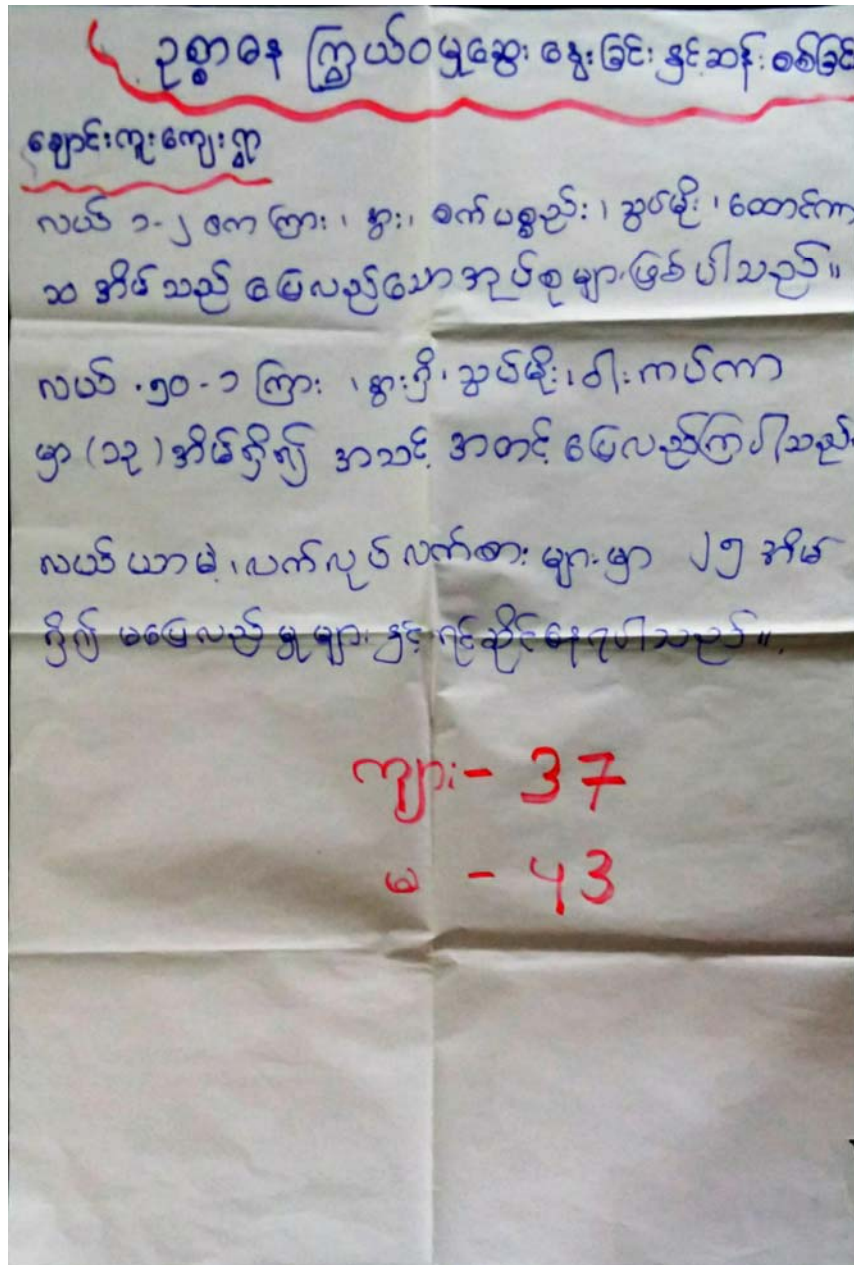 ဥစ္စာဓန ကြွယ်ဝမှုဆွေးနွေးခြင်းနှင့်ဆန်းစစ်ခြင်း
ချောင်းကူးကျေးရွာ
လယ် ၁-၂ ဧက ကြား၊ နွား၊ စက်ပစ္စည်း၊ သွပ်မိုး၊ ထောင်ကာ
၁၀ အိမ်သည် ပြေလည်သောအုပ်စုများဖြစ်ပါသည်။
လယ် .၅၀-၁ ကြား ၊နွားရှိ၊သွပ်မိုး၊ဝါးကပ်ကာ
မှာ (၁၃) အိမ်ရှိ၍ အသင့် အတင့် ပြေလည်ကြပါသည်
လယ်ယာမဲ့၊လက်လုပ်လက်စားများမှာ ၂၅ အိမ်
ရှိ၍ မပြေလည်မှုများနှင့်ရင်ဆိုင်နေရပါသည်။
ကျား - 37
မ - 43